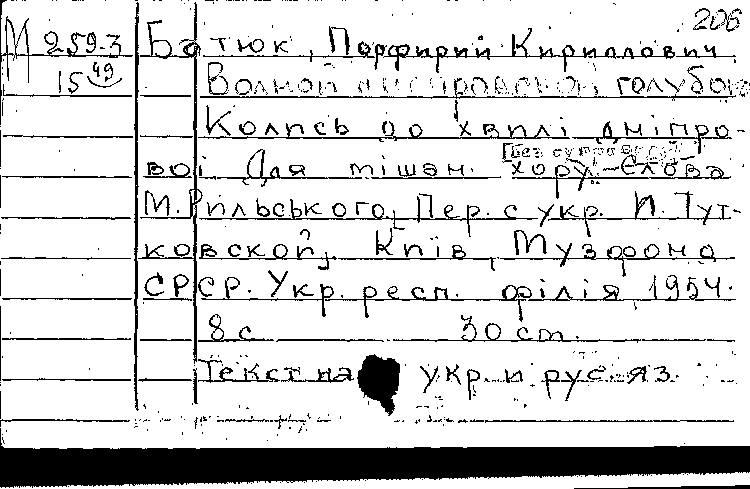 206
М 259-3 Батюк, Порфирий Кириллович
15 49 Волной днепровской голубою
Колись до хвилі дніпро-
[Без сопровожд.]
вої Для мішан. хору. – Слова
М. Рильського, Пер. с укр. И. Тут-
ковской, Київ, Музфонд
СРСР. Укр. респ. філія, 1954.
8 с 30 cm.
Текст на укр. и рус. яз.